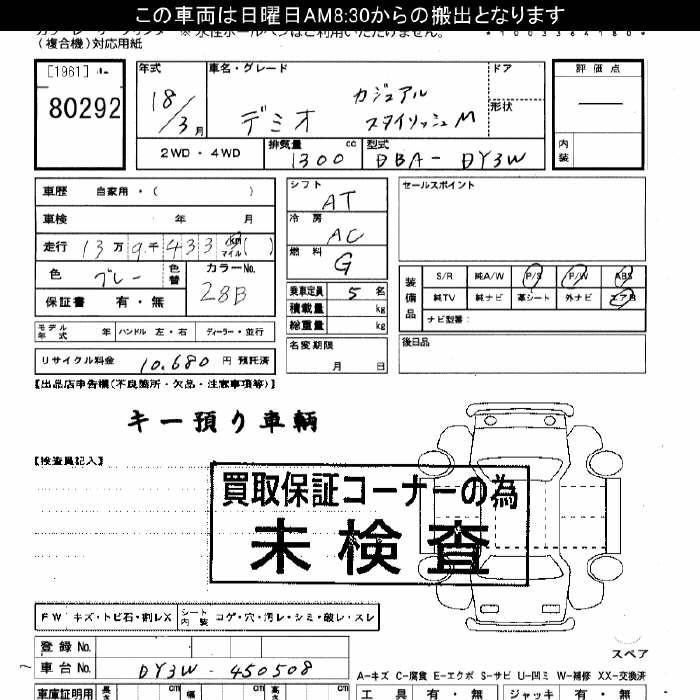 この車両は日曜日AM8:30からの搬出となります
(複合機)対応用紙
[1961]
80292
年式
18/3月
車名・グレード
デミオ
カジュアル
スタイリッシュM
ドア
形状
評価点
内装
2WD・4WD
排気量
1300cc
型式
DBA-DY3W
車歴 自家用・( )
車検 年 月
走行 13万9千433 km マイル( )
色 グレー
色替
カラーNo.
28B
保証書 有・無
シフト
AT
冷房
AC
燃料
G
乗車定員 5名
積載量 kg
総重量 kg
名変期限
月 日
セールスポイント
装備品
S/R 純A/W P/S P/W ABS
純TV 純ナビ 革シート 外ナビ エアB
ナビ型番:
後日品
モデル年式 年 ハンドル 左・右 ディーラー・並行
リサイクル料金 10,680 円 預託済
【出品店申告欄(不良箇所・欠品・注意事項等)】
キー預り車輌
【検査員記入】
買取保証コーナーの為
未検査
FW キズ・トビ石・割レX
シート内装 コゲ・穴・汚レ・シミ・破レ・スレ
スペア
登録No.
車台No. DY3W-450508
A-キズ C-腐食 E-エクボ S-サビ U-凹ミ W-補修 XX-交換済
車庫証明用 長さ cm 幅 cm 高さ cm
工具 有・無 ジャッキ 有・無